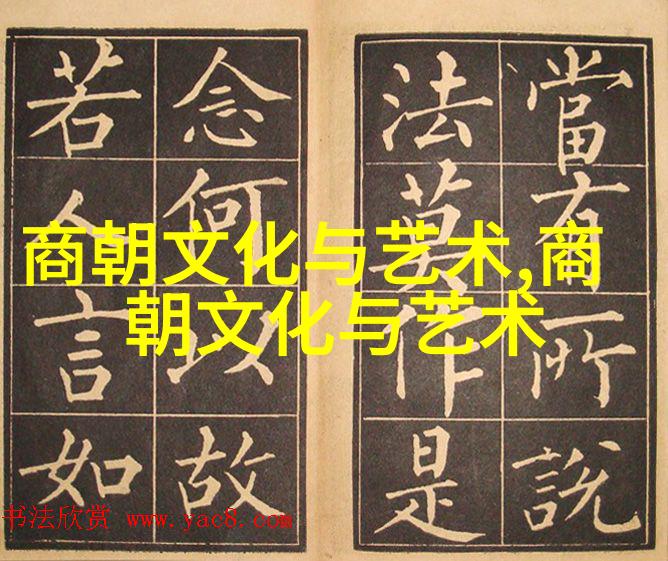 當有所說
法莫作是
念何以故
若人言如
商朝文化与艺术,商
朝文化与艺术
书法欣赏 www.yac8.com